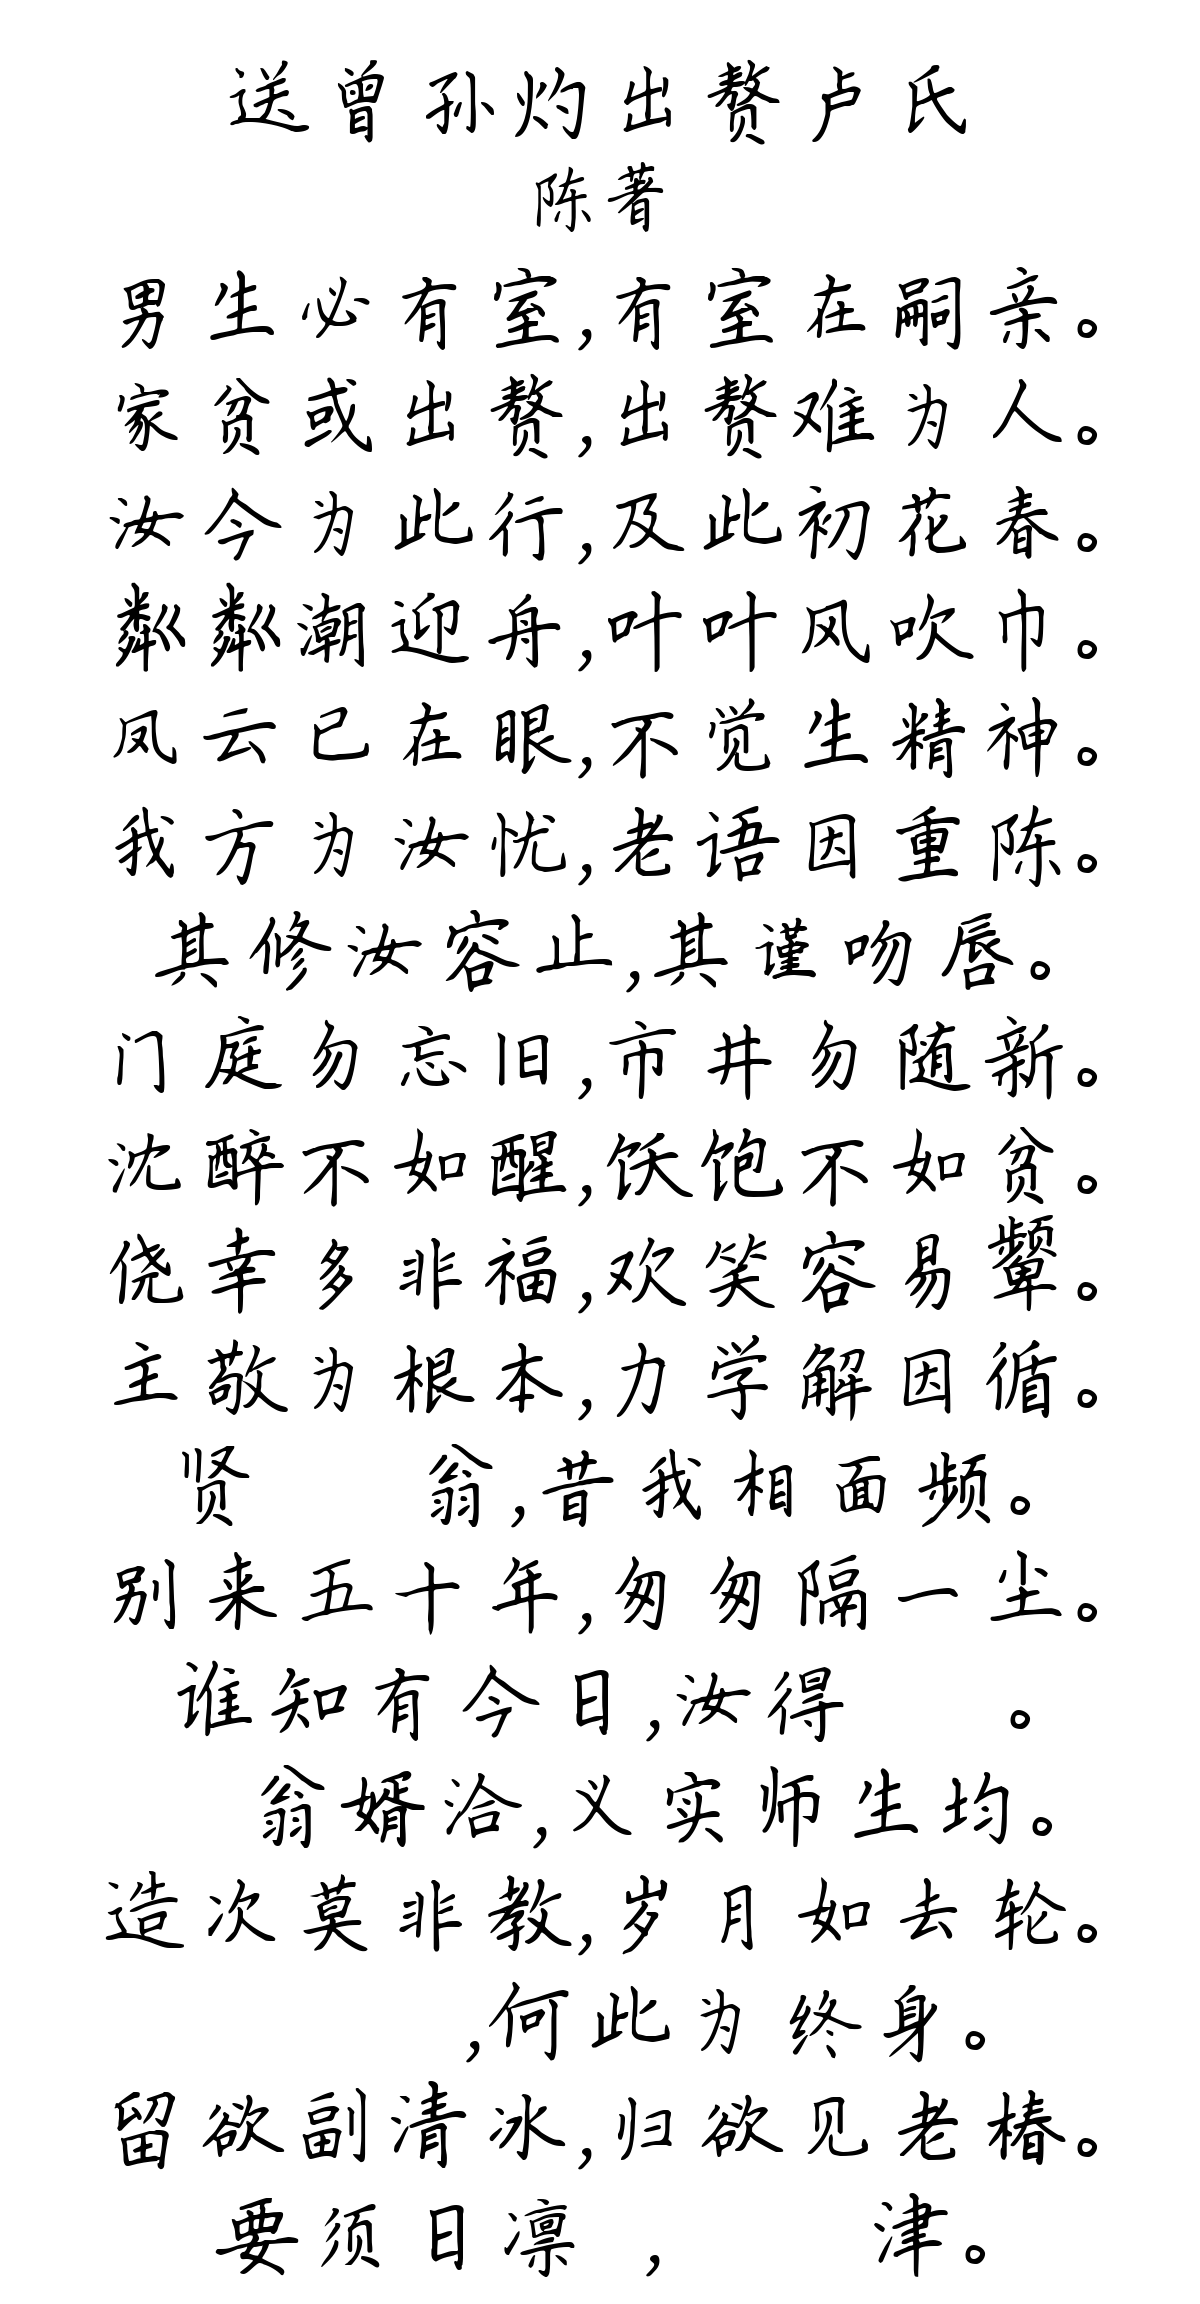 送曾孙灼出赘卢氏
陈著
男生必有室,有室在嗣亲。
家贫或出赘,出赘难为人。
汝今为此行,及此初花春。
粼粼潮迎舟,叶叶风吹巾。
凤云已在眼,不觉生精神。
我方为汝忧,老语因重陈。
其修汝容止,其谨吻唇。
门庭勿忘旧,市井勿随新。
沈醉不如醒,饫饱不如贫。
侥幸多非福,欢笑容易颦。
主敬为根本,力学解因循。
贤 翁,昔我相面频。
别来五十年,匆匆隔一尘。
谁知有今日,汝得 。
翁婿洽,义实师生均。
造次莫非教,岁月如去轮。
,何此为终身。
留欲副清冰,归欲见老椿。
要须日凛 , 津。